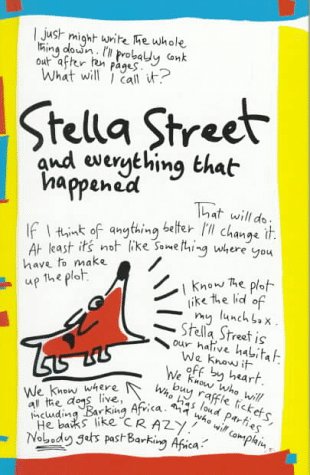 I just might write the whole
thing down. I'll probably conk
out after ten pages.
What will I call it?
Stella Street
and everything that
happened
That will do.
If I think of anything better I'll change it.
At least it's not like something where you
have to make
up the plot.
I know the plot
like the lid of
my lunchbox.
Stella Street is
our native habitat.
We know it
off by heart.
We know who will
buy raffle tickets,
who has loud parties
and who will complain.
We know where
all the dogs live,
including Barking Africa.
He barks like CRAZY!
Nobody gets past Barking Africa!